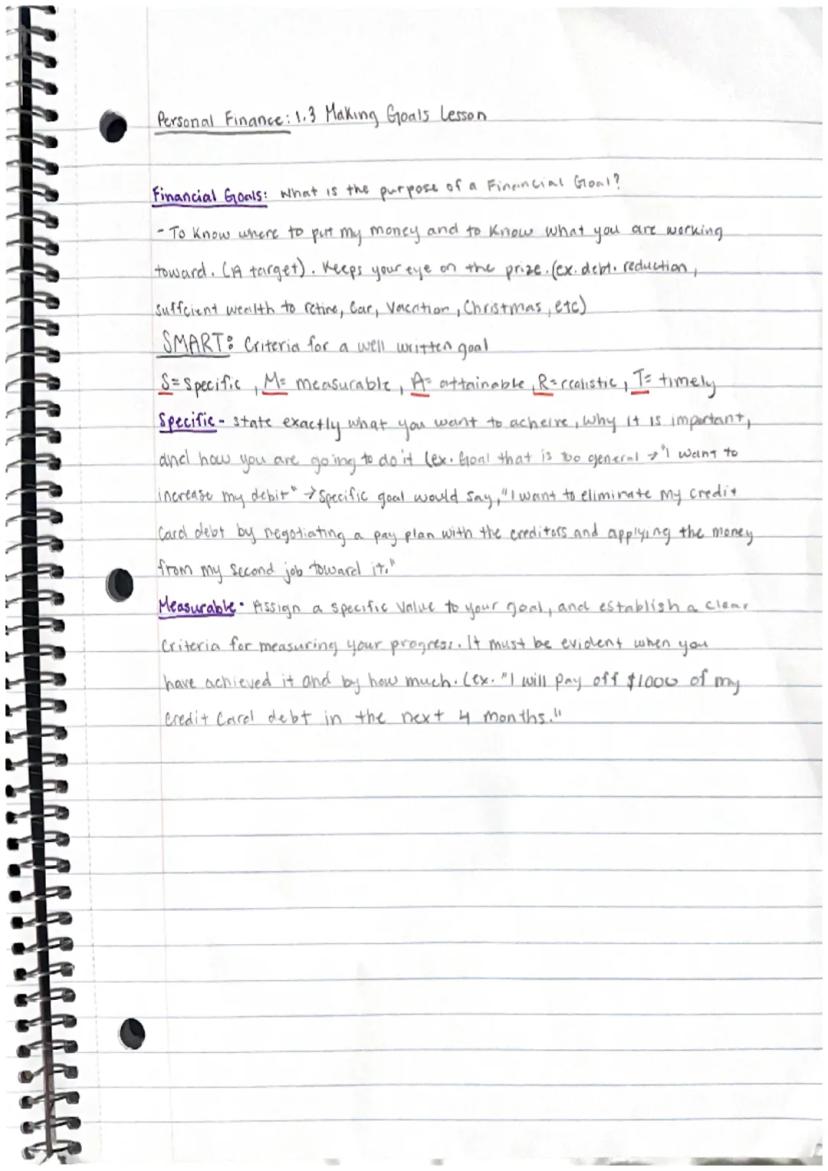 Personal Finance: 1.3 Making Goals Lesson
Financial Goals: What is the purpose of a Financial Goal?
- To Know where to put my money and to Know what you are working
toward. (A target). Keeps your eye on the prize. (ex. debt. reduction,
suffcient wealth to retire, Car, Vacation, Christmas, etc)
SMART: Criteria for a well written goal
S= Specific, M= measurable, A= attainable, R= realistic, T= timely
Specific - state exactly what you want to acheive, why it is important,
and how you are going to do it (ex. Goal that is too general → "I want to
increase my debit" → Specific goal would say, "I want to eliminate my credit
Card debt by negotiating a pay plan with the creditors and applying the money
from my second job toward it."
Measurable - Assign a specific value to your goal, and establish a clear
criteria for measuring your progress. It must be evident when you
have achieved it and by how much. (ex. "I will pay off $1000 of my
Credit Card debt in the next 4 months."